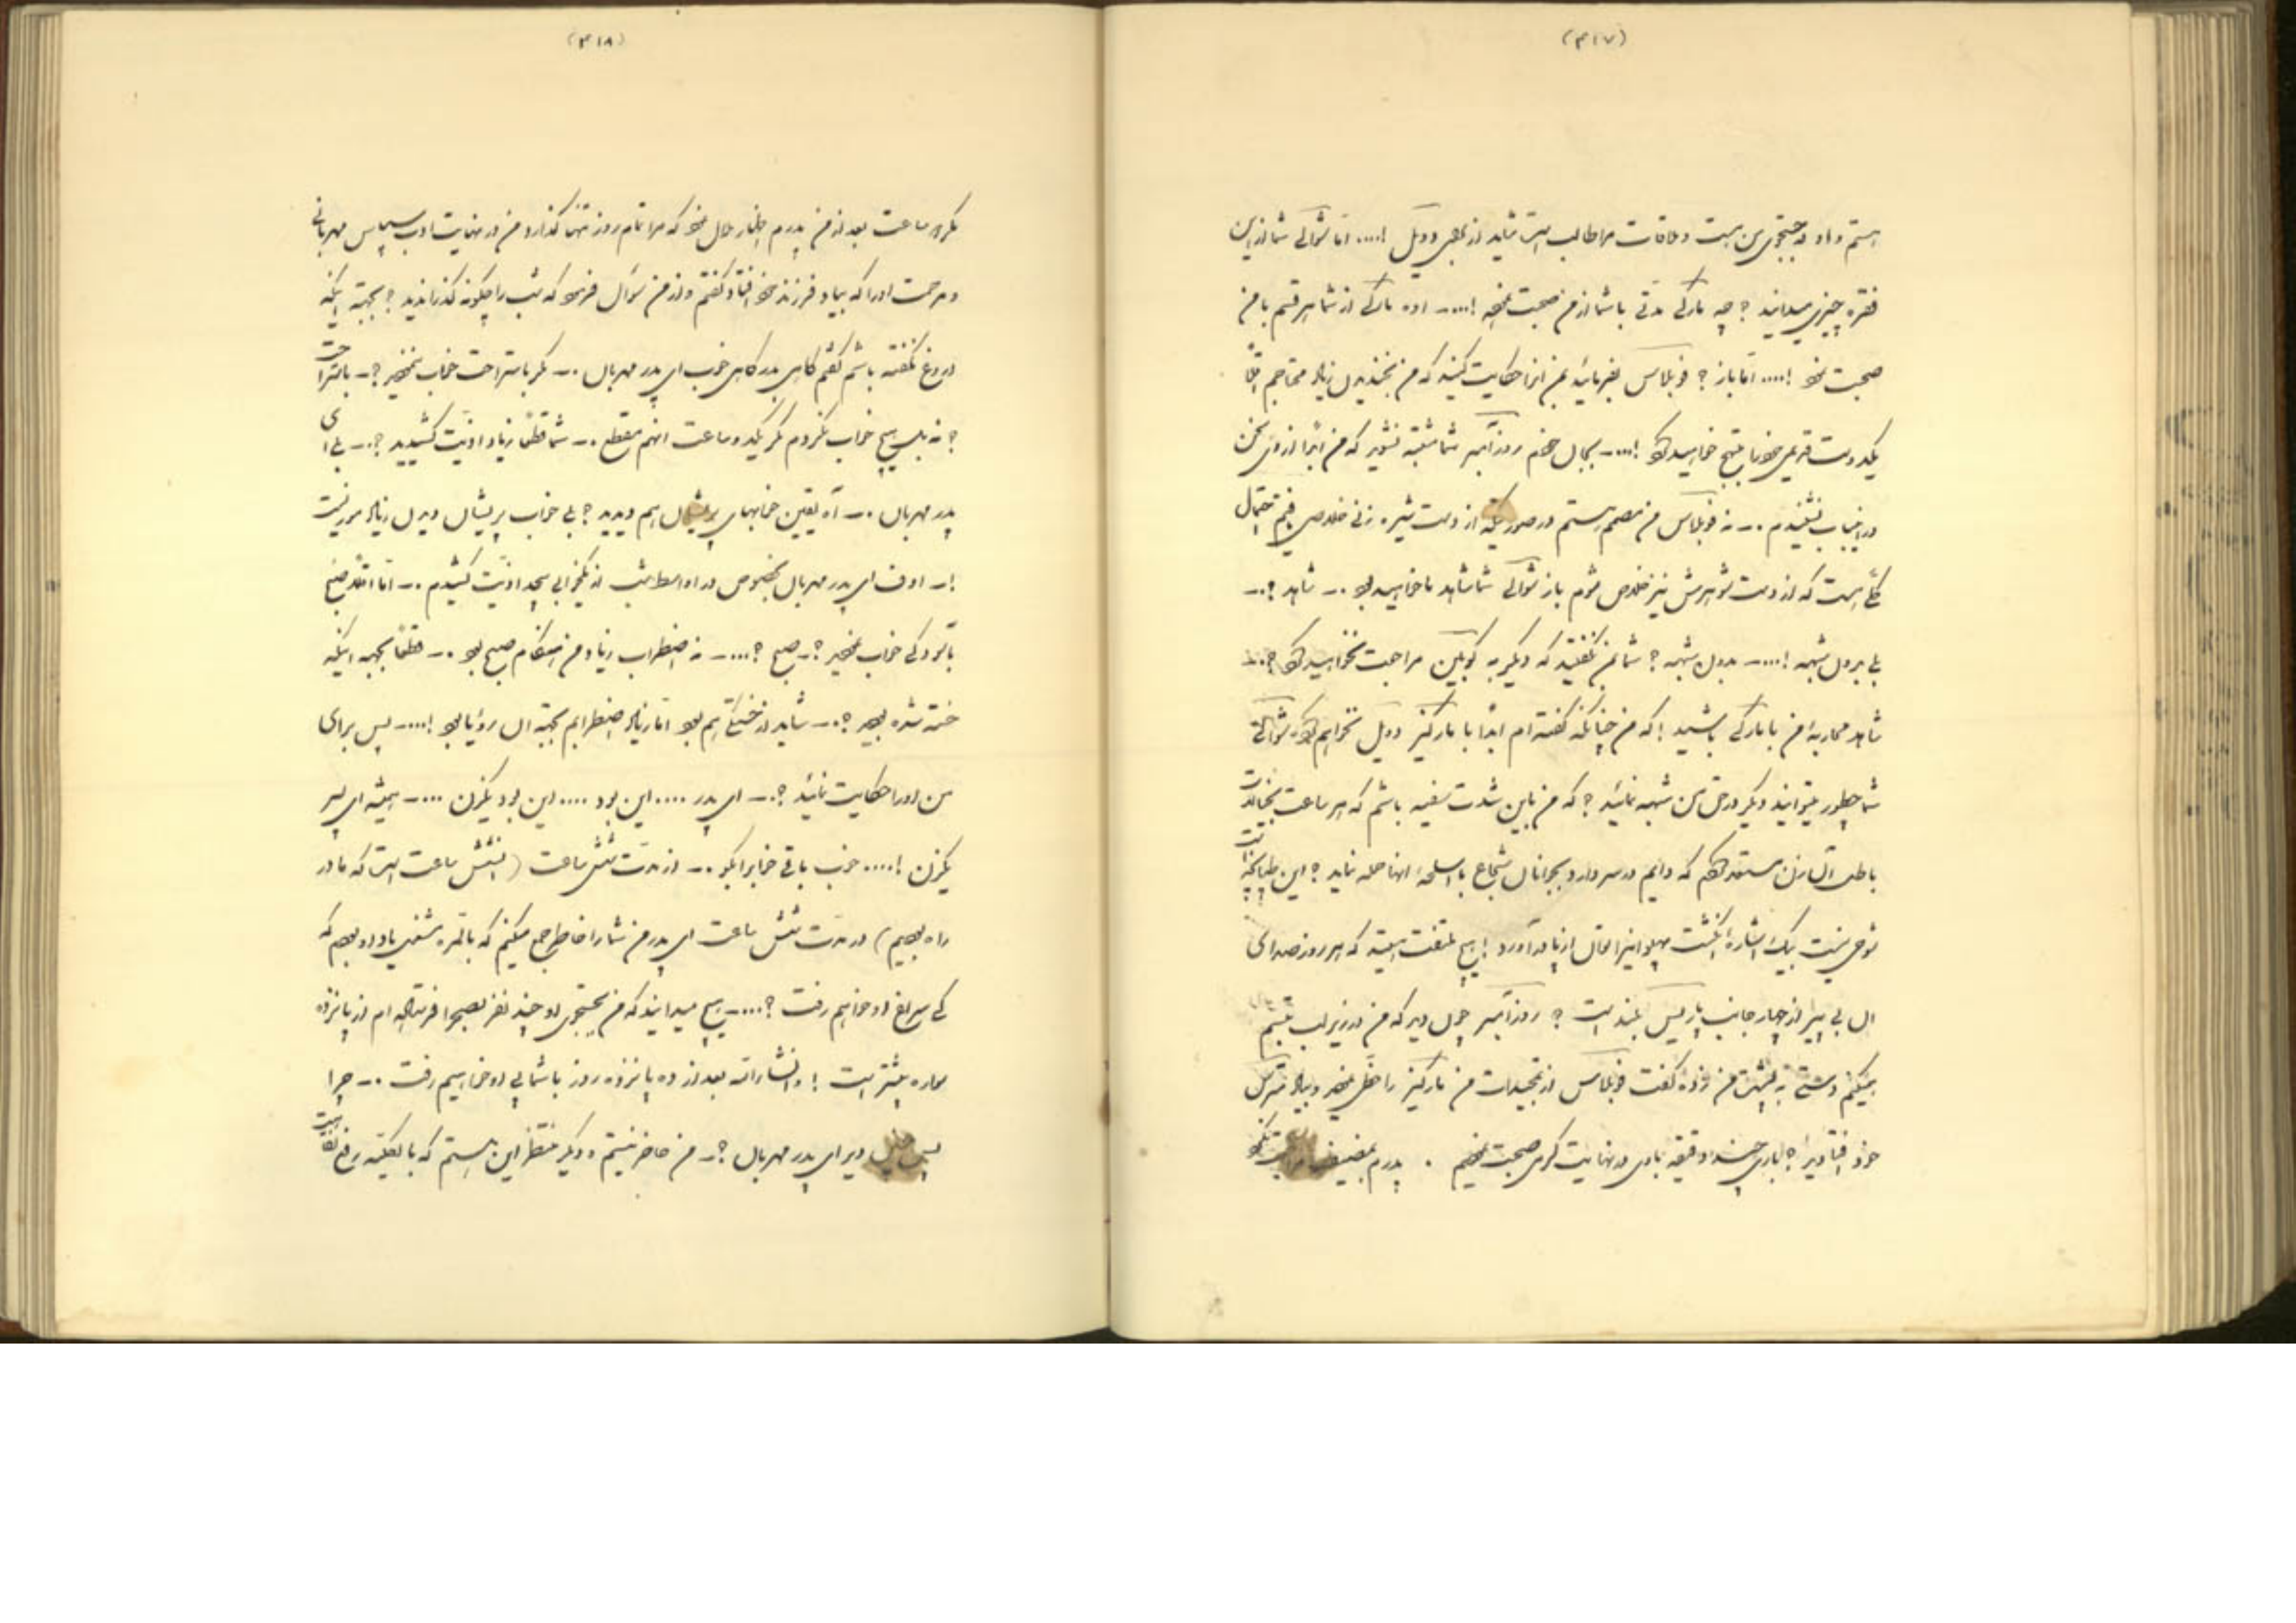 (۳۱۷)
هستم و او در جستجوی من است و ملاقات مرا طالب است شاید از برای دوئل !.... اما شوالی شما از این
فقره چیزی میدانید ؟ چه مارکی مدتی با شما از من صحبت نمود !.... اوه مارکی از شما هر قسم با من
صحبت نمود !.... اما باز ؟ فوبلاس بفرمائید بمن انرا حکایت کنید که من بخندیدن زیاد محتاجم
یکدوست قدیمی خود را خواهید کرد !.... بجان خودم روزامبر شما مشتبه نشوید که من ابدا از وی سخن
در این باب نشنیدم .ـ نه فوبلاس من مصمم هستم در صورتیکه از دست شیره زنی خلاصی یافتم احتمال
کلی است که از دست شوهرش نیز خلاص شوم باز شوالی شما شاهد ما خواهید بود .ـ شاهد ؟.ـ
بلی بدون شبهه !.... بدون شبهه ؟ شما بمن نگفتید که دیگر به کوبلین مراجعت نخواهید کرد ؟..
شاهد محاربه من با مارکی باشید ! که من چنانکه گفته ام ابدا با مارکیز دوئل نخواهم کرد شوالی
شما چطور میتوانید دیگر در حق من شبهه نمائید ؟ که من باین شدت سفیه باشم که هر ساعت
باطل آن زن معتقد گردم که دایم در سر دارد بجوانان شجاع با اسلحه آنها حمله نماید ؟ این طپانچه
شوخی نیست بیک اشاره انگشت پهلوانیرا الان از پا در آورد ! هیچ ملتفت هستید که هر روز صدای
ان بی پیر از چهار جانب پاریس بلند است ؟ روزامبر چون دید که من در زیر لب تبسم
میکنم دستی به پشت من زده گفت فوبلاس از تمجیدات من مارکیز را حظی نمود و بیاد منزل
خود افتادید ؟ باری چند دقیقه با وی در نهایت گرمی صحبت نمودیم . پدرم
(۳۱۸)
مگر دو ساعت بعد از من پدرم اظهار ملال نمود که مرا تمام روز تنها گذارد و من در نهایت ادب سپاس مهربانی
و مرحمت او را که بیاد فرزند خود افتاد گفتم و از من سوال فرمود که شب را چگونه گذرانیدید ؟ بجهته اینکه
دروغ نگفته باشم گفتم گاهی بد گاهی خوب ای پدر مهربان .ـ مگر باستراحت خواب نمودید ؟ـ باستراحت
؟ نه بلی هیچ خواب نکردم مگر یکدو ساعت انهم منقطع .ـ شما قطعا زیاد اذیت کشیدید ؟.ـ بلی ای
پدر مهربان .ـ آه یقین خوابهای پریشان هم دیدید ؟ بلی خواب پریشان دیدن زیاد
!ـ اوف ای پدر مهربان بخصوص در اواسط شب از بیخوابی بیحد اذیت کشیدم .ـ اما اقلا صبح
بآسودگی خواب نمودید ؟ـ صبح ؟....ـ نه اضطراب زیاد من هنگام صبح بود .ـ قطعا بجهه اینکه
خسته شده بودید ؟.ـ شاید از خستگی هم بود اما زیاد اضطرابم بجهته ان رؤیا بود !....ـ پس برای
من او را حکایت نمائید ؟.ـ ای پدر .... این بود .... این بود یکزن ....ـ همیشه ای پسر
یکزن !.... خوب باقی خوابرا بگو .ـ از مدت شش ساعت ( انشش ساعت است که ما در
راه بودیم ) در مدت شش ساعت ای پدر من شما را خاطر جمع میکنم که بالمره شعفی یاد او بودم که
کی سراغ او خواهیم رفت ؟....ـ هیچ میدانید که من بجستجوی او چند نفر بصحرا فرستاده ام از پانزده
سواره بیشتر است ! و انشاالله بعد از ده پانزده روز با شما پی او خواهیم رفت .ـ چرا
پس خیلی دیر ای پدر مهربان ؟ـ من حاضر نیستم و دیگر منتظر این هستم که بالکلیه رفع نقاهت